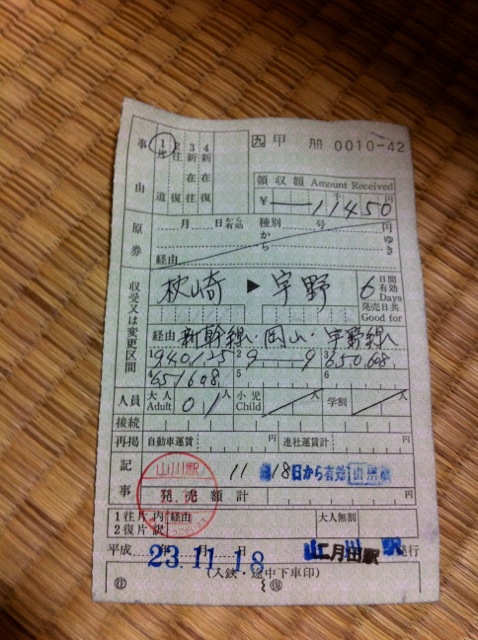 事由
1片道
2往復
3新在往
4新在復
九 甲 册 0010-42
領収額 Amount Received
¥ 11450 円
原券
月 日から有効 種別 号 円
から ゆき
経由
収受又は変更区間
枕崎 ▶ 宇野
6 日間有効 Days
発売日共 Good for
経由 新幹線・岡山・宇野線
1 940125 2 9 9 3 650608
4 651608 5 6
人員 大人 Adult 01人 小児 Child 人 学割 人
接続
再掲 自動車運賃 円 連社運賃計 円
記事
山川駅
11 18日から有効
発売額計 円
1往片 内
2復片 訳
経由 大人無割
平成 23.11.18 月 日 駅 発行
(入鋏・途中下車印)